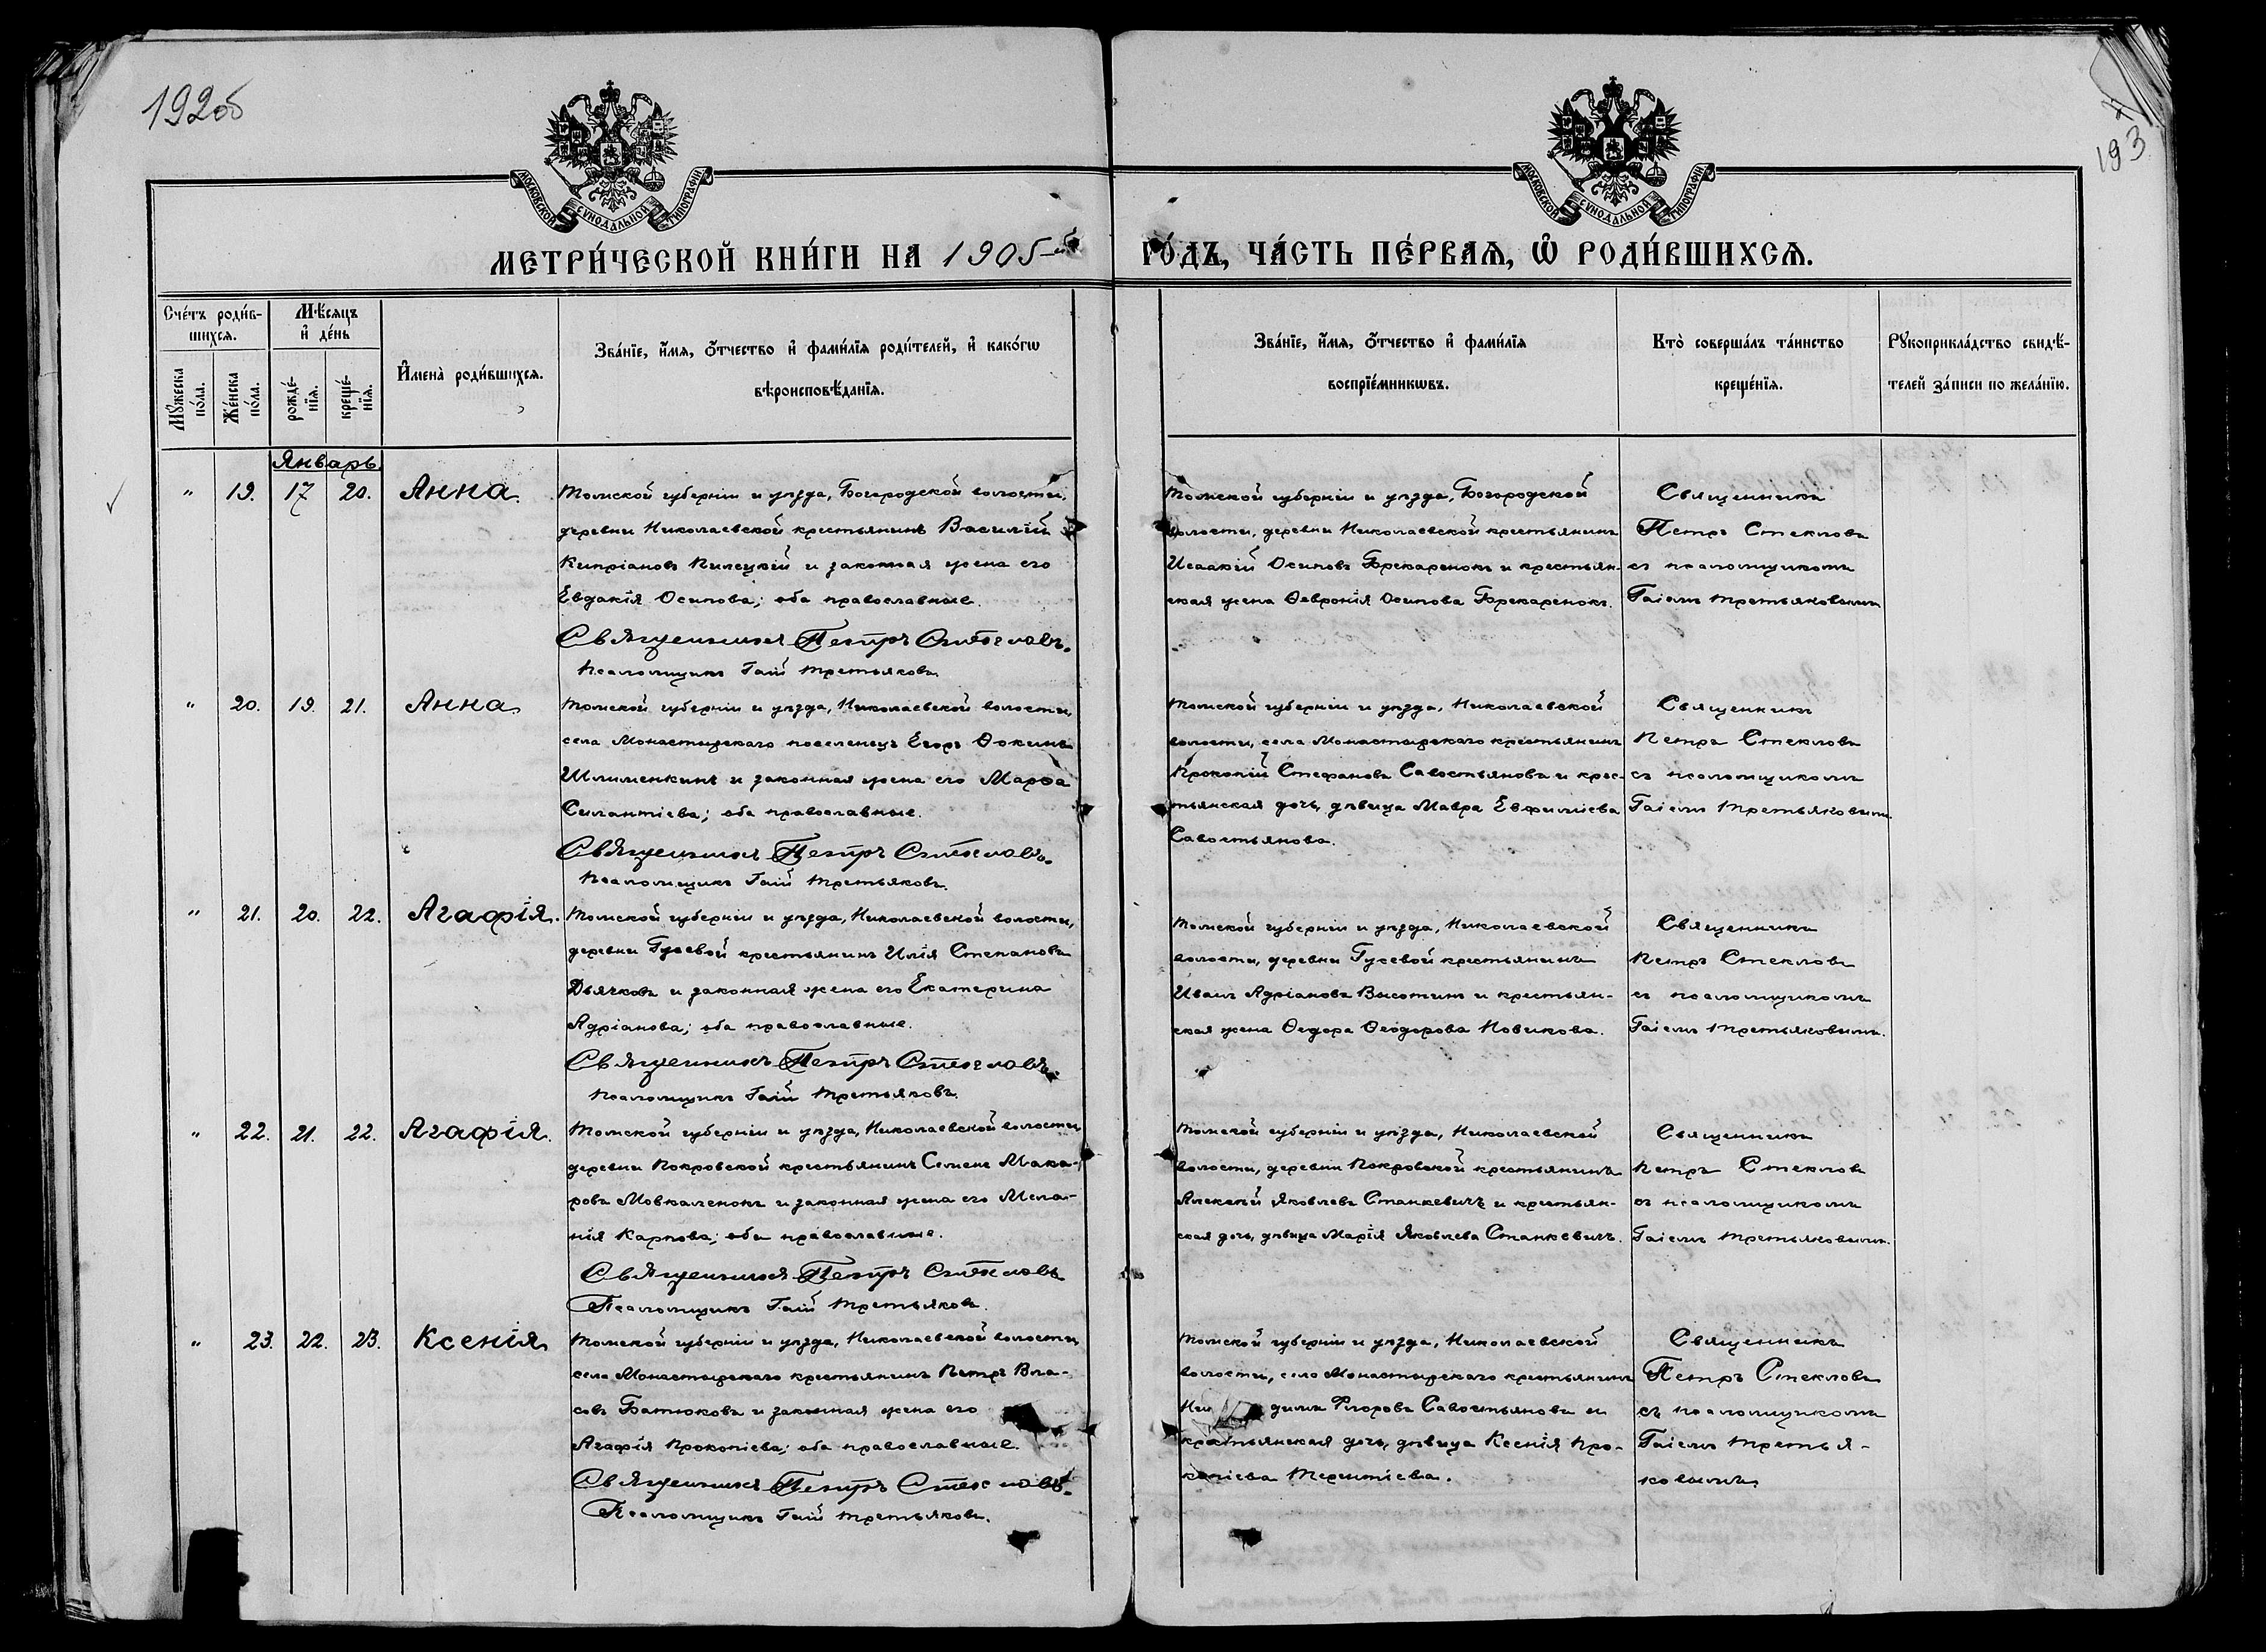 192об
193
МОСКОВСКОЙ СѴНОДАЛЬНОЙ ТИПОГРАФІИ
МОСКОВСКОЙ СѴНОДАЛЬНОЙ ТИПОГРАФІИ
МЕТРИ́ЧЕСКОЙ КНИ́ГИ НА 1905-й
ГО́ДЪ, ЧА́СТЬ ПЕ́РВАѦ, Ѡ҆ РОДИ́ВШИХСѦ.
Сче́тъ роди́в-
шихсѧ.
Мѣ́сѧцъ
и҆ де́нь
Мꙋ́жеска
по́ла.
Же́нска
по́ла.
рожде́-
нїѧ.
креще́-
нїѧ.
И҆мена̀ роди́вшихсѧ.
Зва́нїе, и҆́мѧ, ѻ҆́тчество и҆ фами́лїѧ роди́телей, и҆ како́гѡ
вѣроисповѣ́данїѧ.
Зва́нїе, и҆́мѧ, ѻ҆́тчество и҆ фами́лїѧ
воспрїе́мникѡвъ.
Кто̀ соверша́лъ та́инство
креще́нїѧ.
Рꙋкоприкла́дство свидѣ́-
телей за́писи по жела́нїю.
Январь
" 19. 17 20. Анна.
Томской губерніи и уѣзда, Богородской волости,
деревни Николаевской крестьянинъ Василій
Кипріановъ Килецкій и законная жена его
Евдокія Осипова; оба православные.
Священникъ Петръ Стекловъ.
Псаломщикъ Гаій Третьяковъ.
Томской губерніи и уѣзда, Богородской
волости, деревни Николаевской крестьянинъ
Исаакій Осиповъ Брекаренокъ и крестьян-
ская жена Ѳевронія Осипова Брекаренокъ.
Священникъ
Петръ Стекловъ
съ псаломщикомъ
Гаіемъ Третьяковымъ
" 20. 19. 21. Анна.
Томской губерніи и уѣзда, Николаевской волости,
села Монастырскаго поселенецъ Егоръ Ѳокинъ
Шлименкинъ и законная жена его Марѳа
Силантіева; оба православные.
Священникъ Петръ Стекловъ.
Псаломщикъ Гаій Третьяковъ.
Томской губерніи и уѣзда, Николаевской
волости, села Монастырскаго крестьянинъ
Прокопій Стефановъ Савостьяновъ и крес-
тьянская дочь, дѣвица Мавра Евфиміева
Савостьянова.
Священникъ
Петръ Стекловъ
съ псаломщикомъ
Гаіемъ Третьяковымъ.
" 21. 20. 22. Агафія.
Томской губерніи и уѣзда, Николаевской волости,
деревни Гусевой крестьянинъ Илія Степановъ
Дьячковъ и законная жена его Екатерина
Адріанова; оба православные.
Священникъ Петръ Стекловъ.
Псаломщикъ Гаій Третьяковъ.
Томской губерніи и уѣзда, Николаевской
волости, деревни Гусевой крестьянинъ
Иванъ Адріановъ Высотинъ и крестьян-
ская жена Ѳедора Ѳеодорова Новикова.
Священникъ
Петръ Стекловъ
съ псаломщикомъ
Гаіемъ Третьяковымъ.
" 22. 21. 22. Агафія.
Томской губерніи и уѣзда, Николаевской волости
деревни Покровской крестьянинъ Семенъ Мака-
ровъ Мовкаленокъ и законная жена его Мела-
нія Карпова; оба православные.
Священникъ Петръ Стекловъ
Псаломщикъ Гаій Третьяковъ.
Томской губерніи и уѣзда, Николаевской
волости, деревни Покровской крестьянинъ
Алексѣй Яковлевъ Станкевичъ и крестьян-
ская дочь, дѣвица Марія Яковлева Станкевичъ.
Священникъ
Петръ Стекловъ
съ псаломщикомъ
Гаіемъ Третьяковымъ.
" 23. 22. 23. Ксенія
Томской губерніи и уѣзда, Николаевской волости,
села Монастырскаго крестьянинъ Петръ Вла-
совъ Батюковъ и законная жена его
Агафія Прокопіева; оба православные.
Священникъ Петръ Стекловъ.
Псаломщикъ Гаій Третьяковъ.
Томской губерніи и уѣзда, Николаевской
волости, села Монастырскаго крестьянинъ
Ни димъ Флоровъ Савостьяновъ и
крестьянская дочь, дѣвица Ксенія Про-
копіева Терентіева.
Священникъ
Петръ Стекловъ
съ псаломщикомъ
Гаіемъ Третья-
ковымъ.